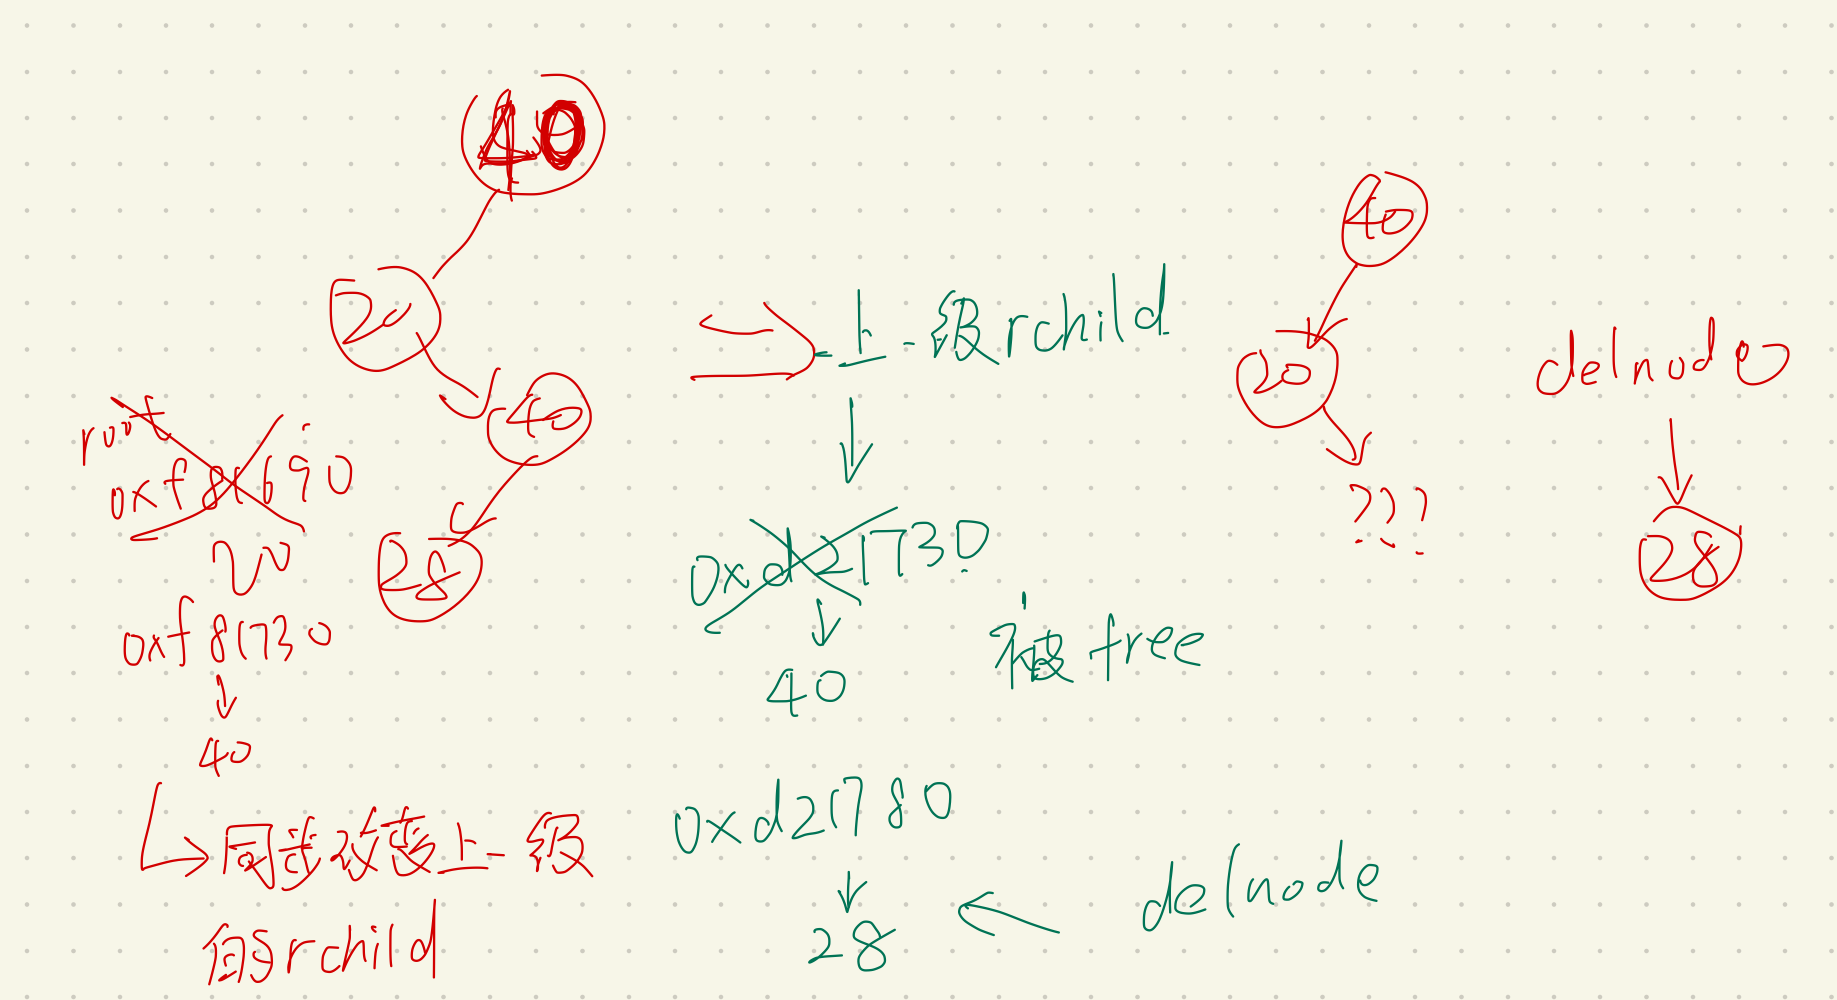 40
20
40
28
root
0xf81690
20
0xf81730
40
同步改变上一级
的rchild
上一级rchild
0xd21730
40
被free
0xd21780
28
delnode
40
20
???
delnode
28